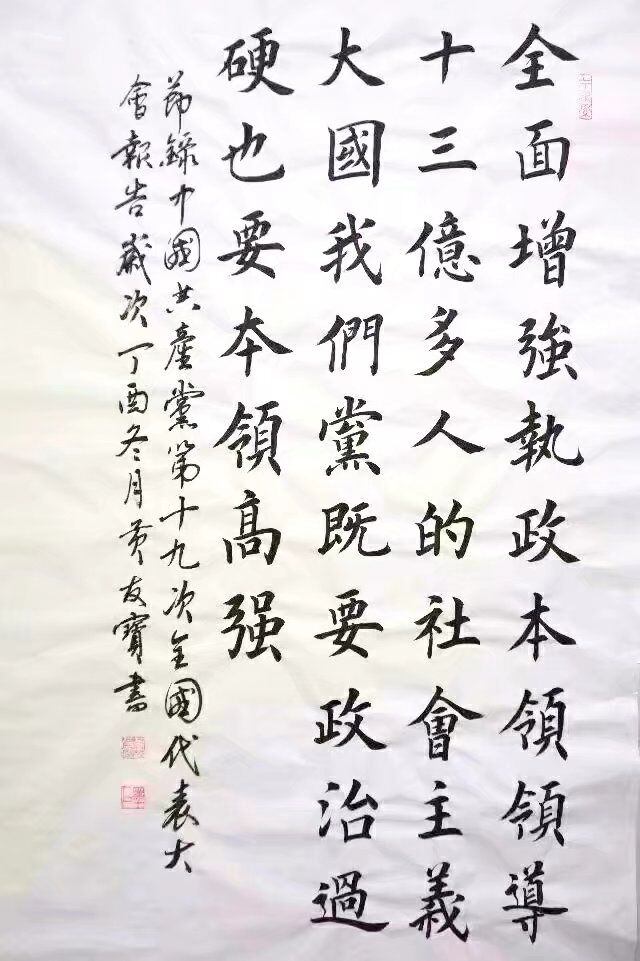 全面增強執政本領領導
十三億多人的社會主義
大國我們黨既要政治過
硬也要本領高强
節錄中國共產黨第十九次全國代表大
會報告歲次丁酉冬月黄友寶書